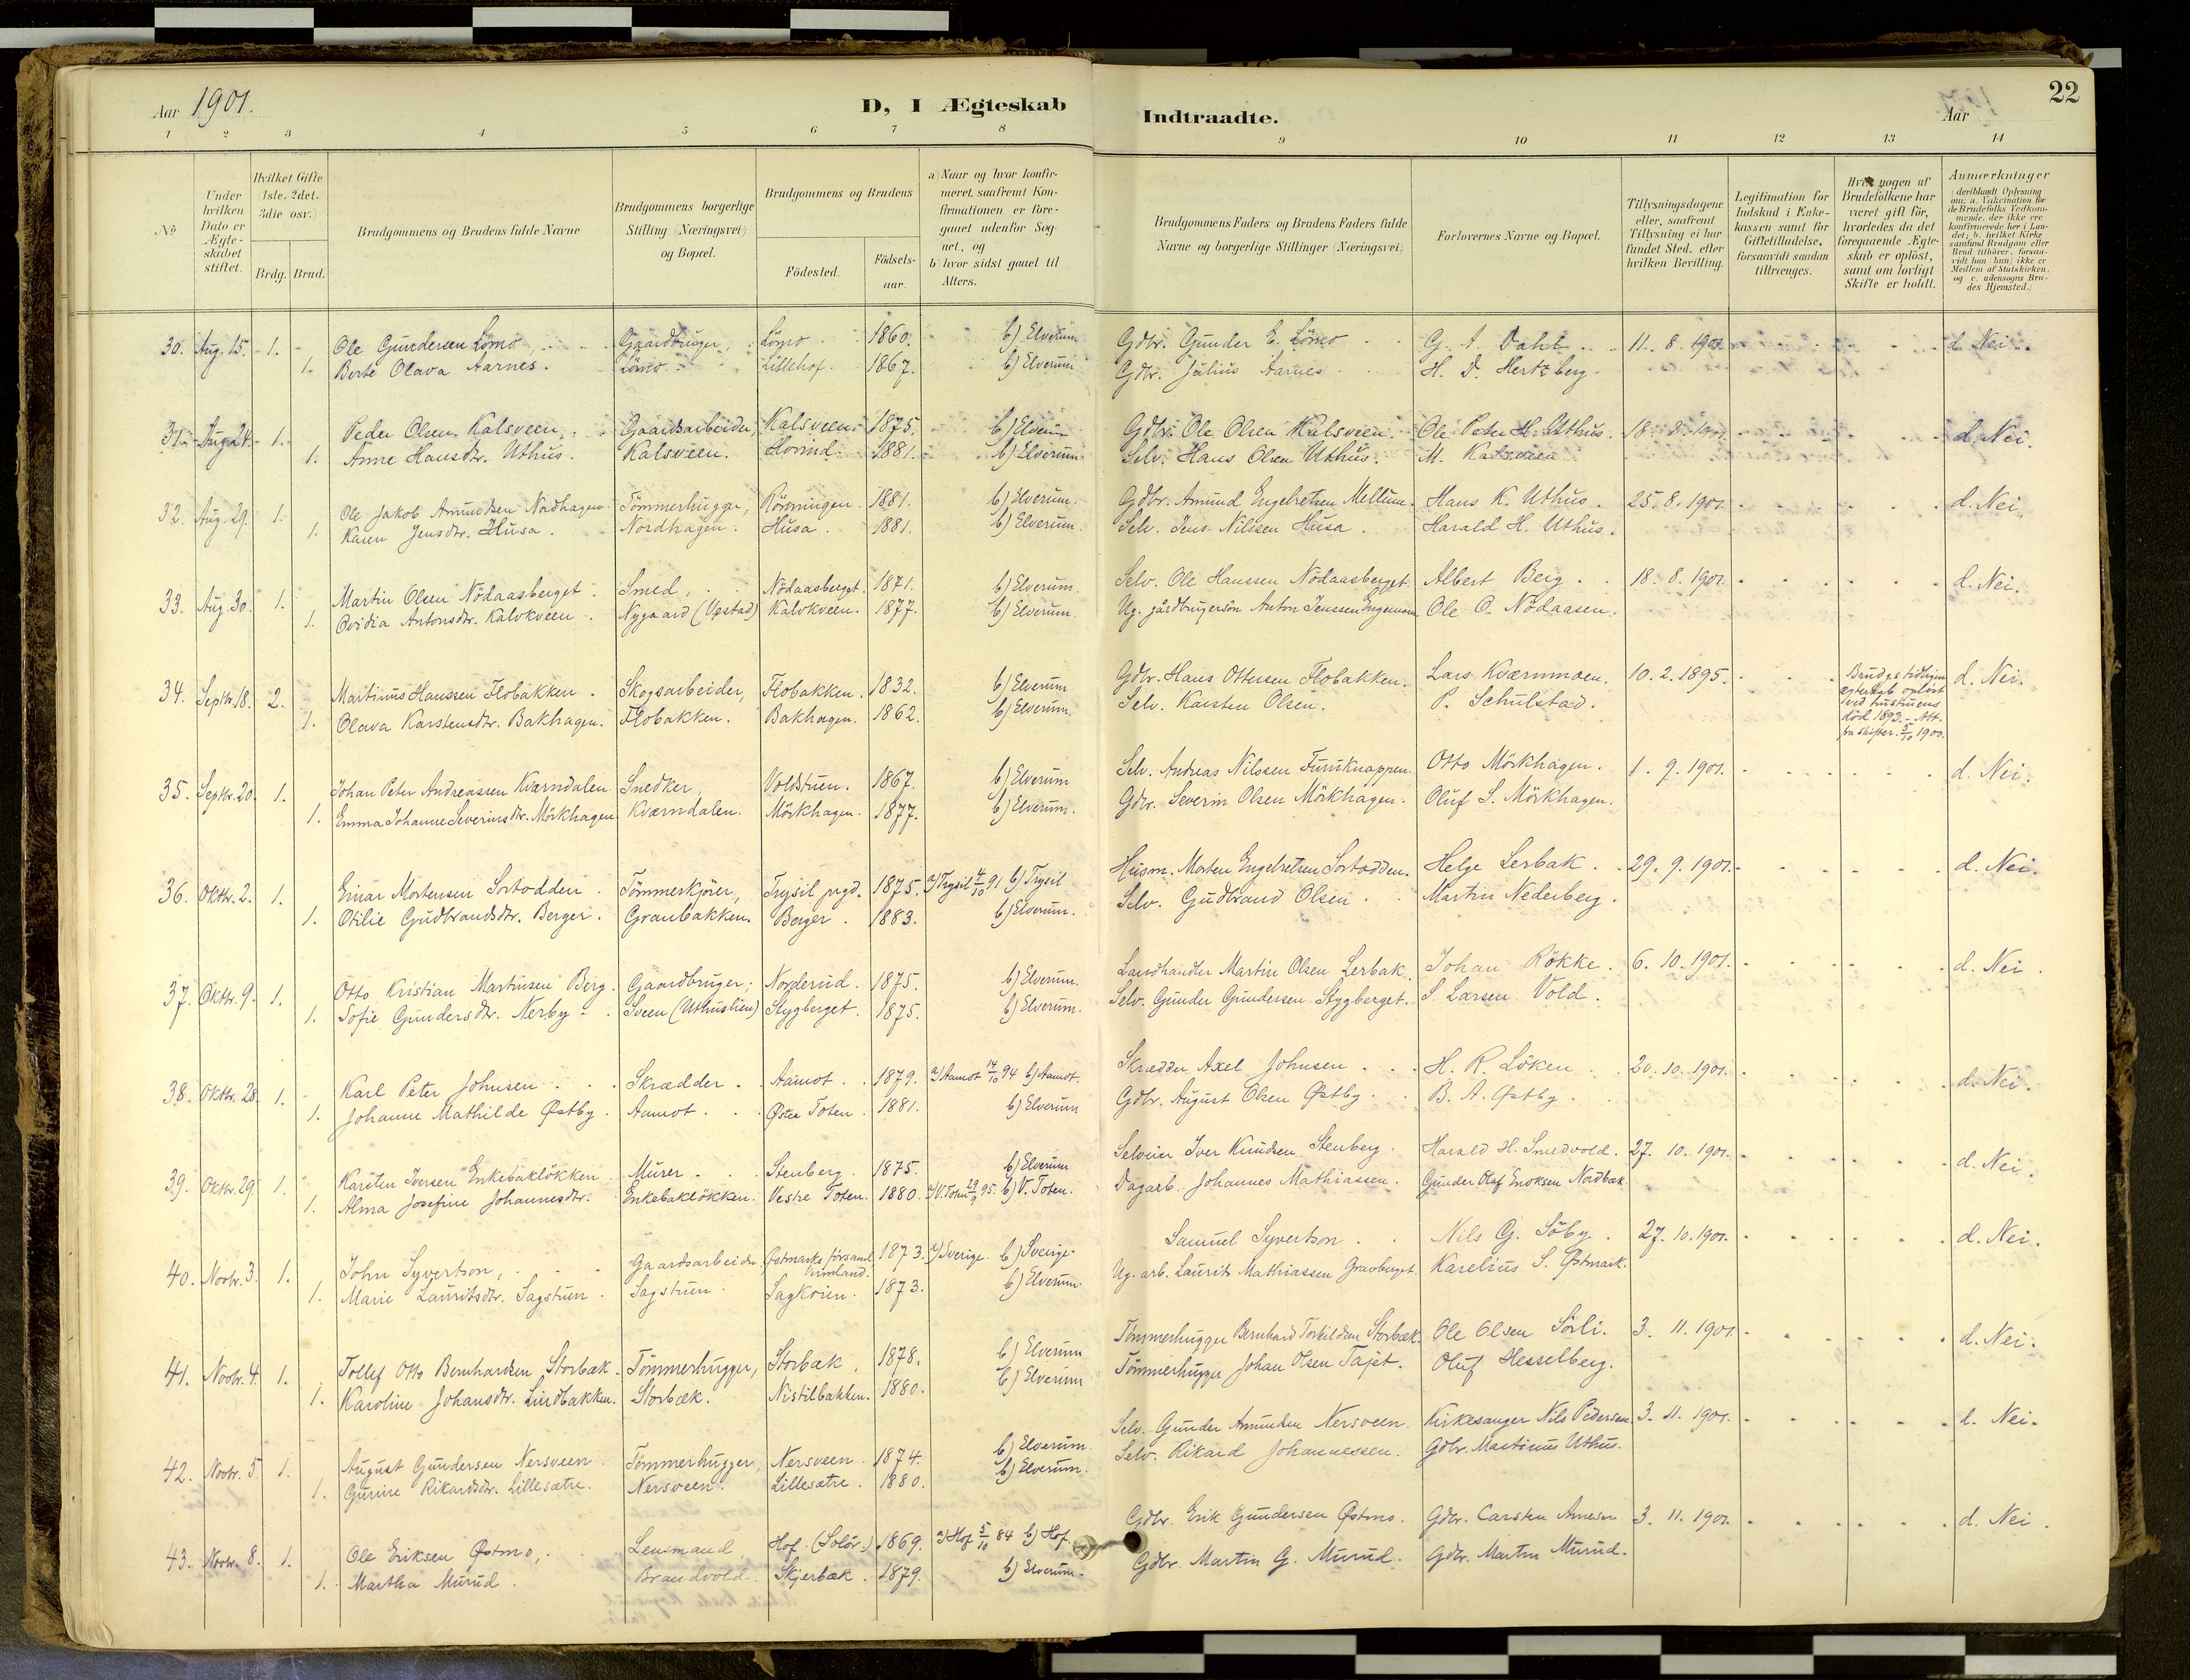 Aar 1901.
D, I Ægteskab
Indtraadte.
Aar
22
1 2 3 4 5 6 7 8 9 10 11 12 13 14
No
Under hvilken Dato er Ægteskabet stiftet.
Hvilket Gifte (1ste, 2det, 3die osv.)
Brdg. Brud.
Brudgommens og Brudens fulde Navne
Brudgommens borgerlige Stilling (Næringsvei) og Bopæl.
Brudgommens og Brudens
Födested.
Födsels-aar.
a) Naar og hvor konfirmeret, saafremt Konfirmationen er foregaaet udenfor Sognet, og
b) hvor sidst gaaet til Alters.
Brudgommens Faders og Brudens Faders fulde Navne og borgerlige Stillinger (Næringsvei)
Forlovernes Navne og Bopæl.
Tillysningsdagene eller, saafremt Tillysning ei har fundet Sted, efter hvilken Bevilling.
Legitimation for Indskud i Enkekassen samt for Giftetilladelse, forsaavidt saadan tiltrænges.
Hvis nogen af Brudefolkene har været gift för, hvorledes da det foregaaende Ægteskab er oplöst, samt om lovligt Skifte er holdt.
Anmærkninger (deriblandt Oplysning om: a. Vakcination for de Brudefolks Vedkommende, der ikke ere konfirmerede her i Landet; b. hvilket Kirkesamfund Brudgom eller Brud tilhörer, forsaavidt han (hun) ikke er Medlem af Statskirken, og c. udensogns Brudes Hjemsted.)
30. Aug. 15. 1. Ole Gundersen Lömo Gaardbruger, Lömo 1860. b) Elverum Gdbr. Gunder E. Lömo G. A. Dahl 11. 8. 1901 d. Nei.
1. Berte Olava Aarnes. Lömo Lillehof. 1867. b) Elverum Gdbr. Julius Aarnes H. D. Hertzberg.
31. Aug. 24. 1. Peder Olsen Kalsveen. Gaardsarbeider, Kalsveen. 1875. b) Elverum Gdbr. Ole Olsen Kalsveen. Ole Peter H. Uthus. 18. 8. 1901. d. Nei.
1. Anne Hansdtr. Uthus. Kalsveen. Hvind. 1881. b) Elverum Selv. Hans Olsen Uthus. M. Kalsveen
32. Aug. 29. 1. Ole Jakob Amundsen Nordhagen Tömmerhugger, Rönningen. 1881. b) Elverum. Gdbr. Amund Engebretsen Mellum. Hans K. Uthus. 25. 8. 1901. d. Nei.
1. Karen Jensdtr. Husa. Nordhagen. Husa. 1881. b) Elverum. Selv. Jens Nilssen Husa. Harald H. Uthus.
33. Aug. 30. 1. Martin Olsen Nödaasberget. Smed, Nödaasberget. 1871. b) Elverum. Selv. Ole Hanssen Nödaasberget Albert Berg. 18. 8. 1901. d. Nei.
1. Ovidia Antonsdtr. Kalvkveen. Nygaard (Opstad) Kalvkveen. 1877. b) Elverum. Ug. gårdbrugersön Anton Jenssen Engemoen Ole O. Nödaasen.
34. Septbr. 18. 2. Martinus Hanssen Flobakken. Skogsarbeider, Flobakken. 1832. b) Elverum Gdbr. Hans Ottersen Flobakken. Lars Kværnmoen. 10. 2. 1895. Brudg.s tidligere ægteskab oplöst ved hustruens död 1893. - Att. fra skifter. 5/10 1900. d. Nei.
1. Olava Karstensdtr. Bakhagen. Flobakken. Bakhagen. 1862. b) Elverum. Selv. Karsten Olsen. P. Schulstad.
35. Septbr. 20. 1. Johan Peter Andreassen Kværndalen Snedker, Voldstuen. 1867. b) Elverum Selv. Andreas Nilssen Furuknappen. Otto Mörkhagen. 1. 9. 1901. d. Nei.
1. Emma Johanne Severinsdtr. Mörkhagen Kværndalen. Mörkhagen. 1877. b) Elverum. Gdbr. Severin Olsen Mörkhagen. Oluf S. Mörkhagen.
36. Oktbr. 2. 1. Einar Mortensen Sortodden. Tömmerkjörer, Trysil prgd. 1875. a) Trysil 4/10 91 b) Trysil Husm. Morten Engebretsen Sortodden. Helge Lerbak. 29. 9. 1901. d. Nei.
1. Otilie Gudbrandsdtr. Berger. Granbakken. Berger. 1883. b) Elverum. Selv. Gudbrand Olsen. Martin Nederberg.
37. Oktbr. 9. 1. Otto Kristian Martinsen Berg. Gaardbruger, Norderud. 1875. b) Elverum. Landhandler Martin Olsen Lerbak. Johan Rökke. 6. 10. 1901. d. Nei.
1. Sofie Gundersdtr. Nerby. Sveen (Uthuslien) Stygberget. 1875. b) Elverum. Selv. Gunder Gundersen Stygberget. S. Larsen Vold.
38. Oktbr. 28. 1. Karl Peter Johnsen Skrædder Aamot 1879. a) Aamot 14/10 94 b) Aamot. Skrædder Axel Johnsen H. R. Löken 20. 10. 1901. d. Nei.
1. Johanne Mathilde Østby. Aamot. Østre Toten. 1881. b) Elverum Gdbr. August Olsen Østby. B. A. Østby.
39. Oktbr. 29. 1. Karsten Iversen Enkebaklökken Murer Stenberg. 1875. b) Elverum Selveier Iver Knudsen Stenberg. Harald H. Smedvold. 27. 10. 1901. d. Nei.
1. Alma Josefine Johannesdtr. Enkebaklökken. Vestre Toten. 1880. a) V. Toten 29/9 95. b) V. Toten. Dagarb. Johannes Mathiassen. Gunder Olaf Enoksen Nordbæk
40. Novbr. 3. 1. John Syvertson, Gaardsarbeider Østmarks församl. Vermland. 1873. a) Sverige. b) Sverige. Samuel Syvertson Nils G. Söby. 27. 10. 1901. d. Nei.
1. Marie Lauritsdtr. Sagstuen. Sagstuen. Sagkoien. 1873. b) Elverum. Ug. arb. Laurits Mathiassen Gravberget. Karelius S. Østmark.
41. Novbr. 4. 1. Tollef Otto Bernhardsen Storbæk. Tömmerhugger, Storbæk. 1878. b) Elverum Tömmerhugger Bernhard Torkildsen Storbæk. Ole Olsen Sörli. 3. 11. 1901. d. Nei.
1. Karoline Johansdtr. Lindbakken. Storbæk. Nistilbakken. 1880. b) Elverum Tömmerhugger Johan Olsen Tajet. Oluf Hesselberg.
42. Novbr. 5. 1. August Gundersen Nersveen Tömmerhugger, Nersveen. 1874. b) Elverum. Selv. Gunder Amundsen Nersveen. Kirkesanger Nils Pedersen 3. 11. 1901. d. Nei.
1. Gurine Rikardsdtr. Lillesætre. Nersveen. Lillesætre. 1880. b) Elverum. Selv. Rikard Johannessen. Gdbr. Martinus Uthus.
43. Novbr. 8. 1. Ole Eriksen Østmo, Lensmand, Hof (Solör.) 1869. a) Hof 5/10 84 b) Hof. Gdbr. Erik Gundersen Østmo. Gdbr. Carsten Arnesen 3. 11. 1901. d. Nei.
1. Martha Murud. Brandvold. Skjerbæk. 1879. b) Elverum. Gdbr. Martin G. Murud. Gdbr. Martin Murud.